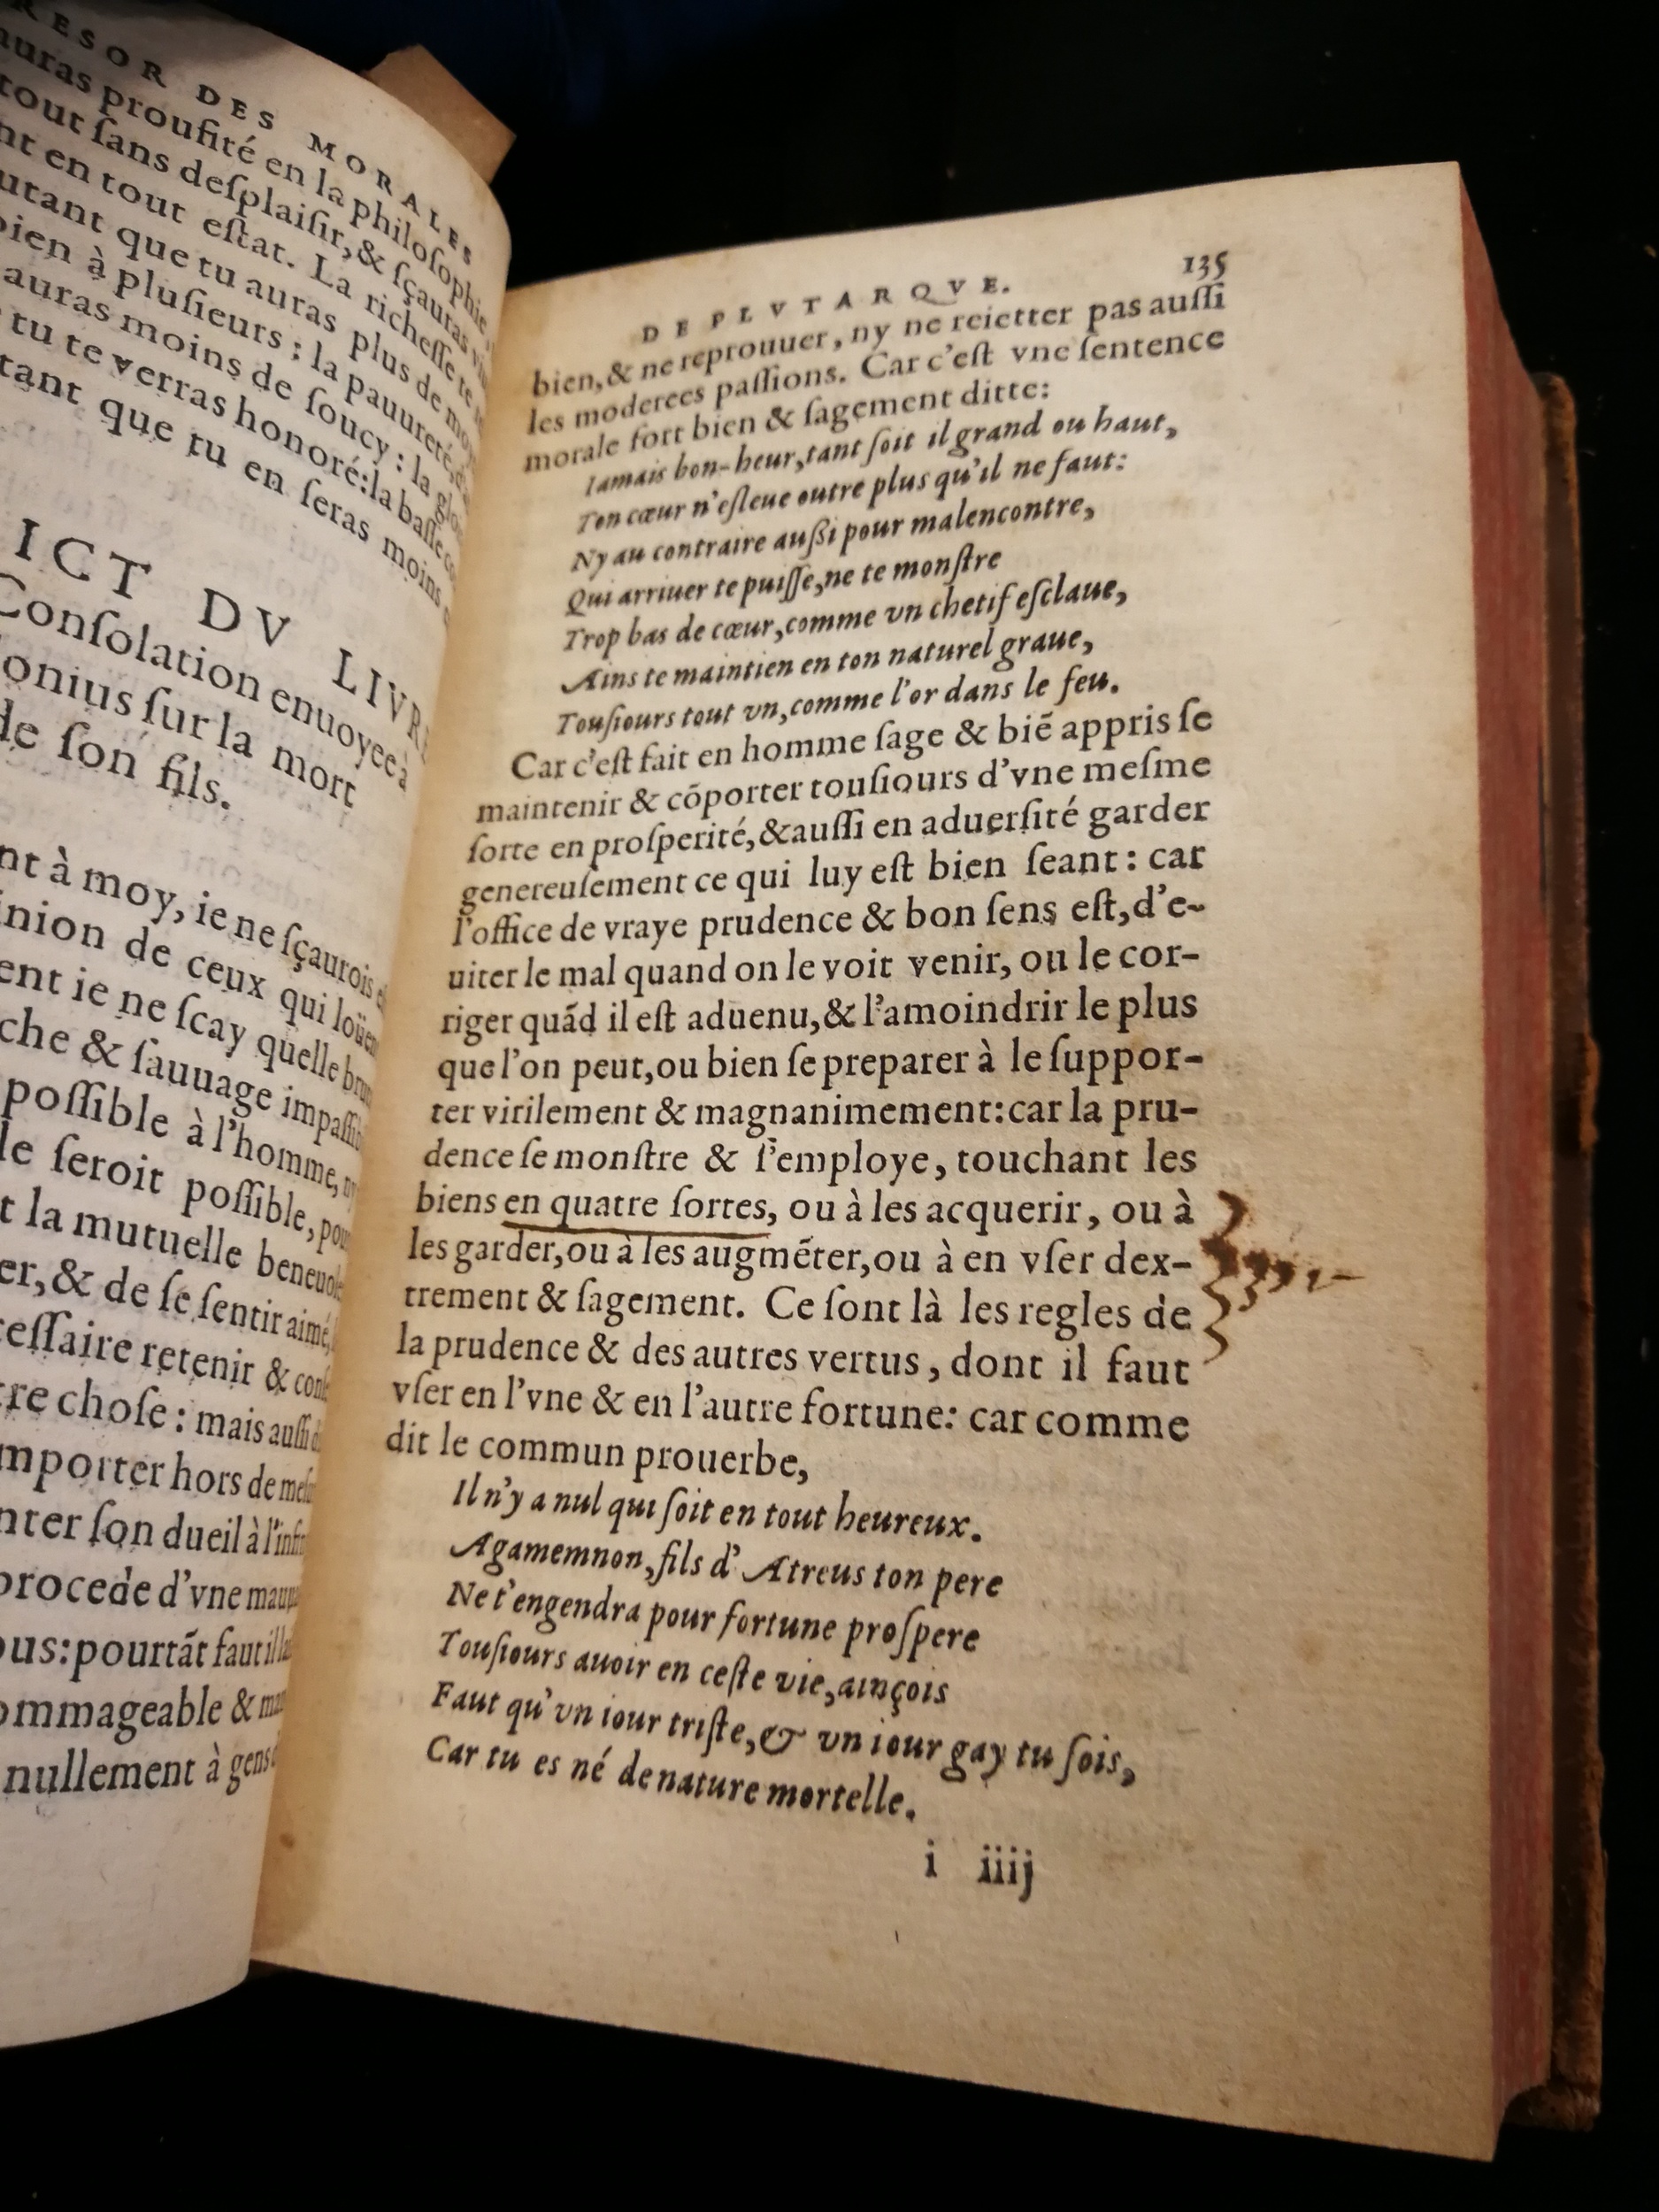 RESOR DES MORALES
auras proufité en la philoſophie
tout ſans deſplaiſir, & ſçauras
nt en tout eſtat. La richeſſe te
utant que tu auras plus de
bien à pluſieurs : la pauureté,
auras moins de ſoucy : la
tu te verras honoré: la baſſe
tant que tu en ſeras moins
ICT DV LIVRE
Conſolation enuoyee à
onius ſur la mort
de ſon fils.
nt à moy, ie ne ſçaurois
inion de ceux qui loüent
ent ie ne ſcay quelle
che & ſauuage
poſſible à l'homme,
le ſeroit poſſible,
t la mutuelle
er, & de ſe ſentir aimé,
ceſſaire retenir &
tre choſe : mais auſſi
mporter hors de
nter ſon dueil à
procede d'vne
ous: pourtãt faut il
ommageable &
nullement à gens
DE PLVTARQVE. 135
bien, & ne reprouuer, ny ne reietter pas auſſi
les moderees paſſions. Car c'eſt vne ſentence
morale fort bien & ſagement ditte:
Iamais bon-heur, tant ſoit il grand ou haut,
Ton cœur n'eſleue outre plus qu'il ne faut:
Ny au contraire auſſi pour malencontre,
Qui arriuer te puiſſe, ne te monſtre
Trop bas de cœur, comme vn chetif eſclaue,
Ains te maintien en ton naturel graue,
Touſiours tout vn, comme l'or dans le feu.
Car c'eſt fait en homme ſage & biẽ appris ſe
maintenir & cõporter touſiours d'vne meſme
ſorte en proſperité, & auſſi en aduerſité garder
genereuſement ce qui luy eſt bien ſeant : car
l'office de vraye prudence & bon ſens eſt, d'e-
uiter le mal quand on le voit venir, ou le cor-
riger quãd il eſt aduenu, & l'amoindrir le plus
que l'on peut, ou bien ſe preparer à le ſuppor-
ter virilement & magnanimement: car la pru-
dence ſe monſtre & ſ'employe, touchant les
biens en quatre ſortes, ou à les acquerir, ou à
les garder, ou à les augmẽter, ou à en vſer dex-
trement & ſagement. Ce ſont là les regles de
la prudence & des autres vertus, dont il faut
vſer en l'vne & en l'autre fortune: car comme
dit le commun prouerbe,
Il n'y a nul qui ſoit en tout heureux.
Agamemnon, fils d'Atreus ton pere
Ne t'engendra pour fortune proſpere
Touſiours auoir en ceſte vie, ainçois
Faut qu'vn iour triſte, & vn iour gay tu ſois,
Car tu es né de nature mortelle.
i iiij